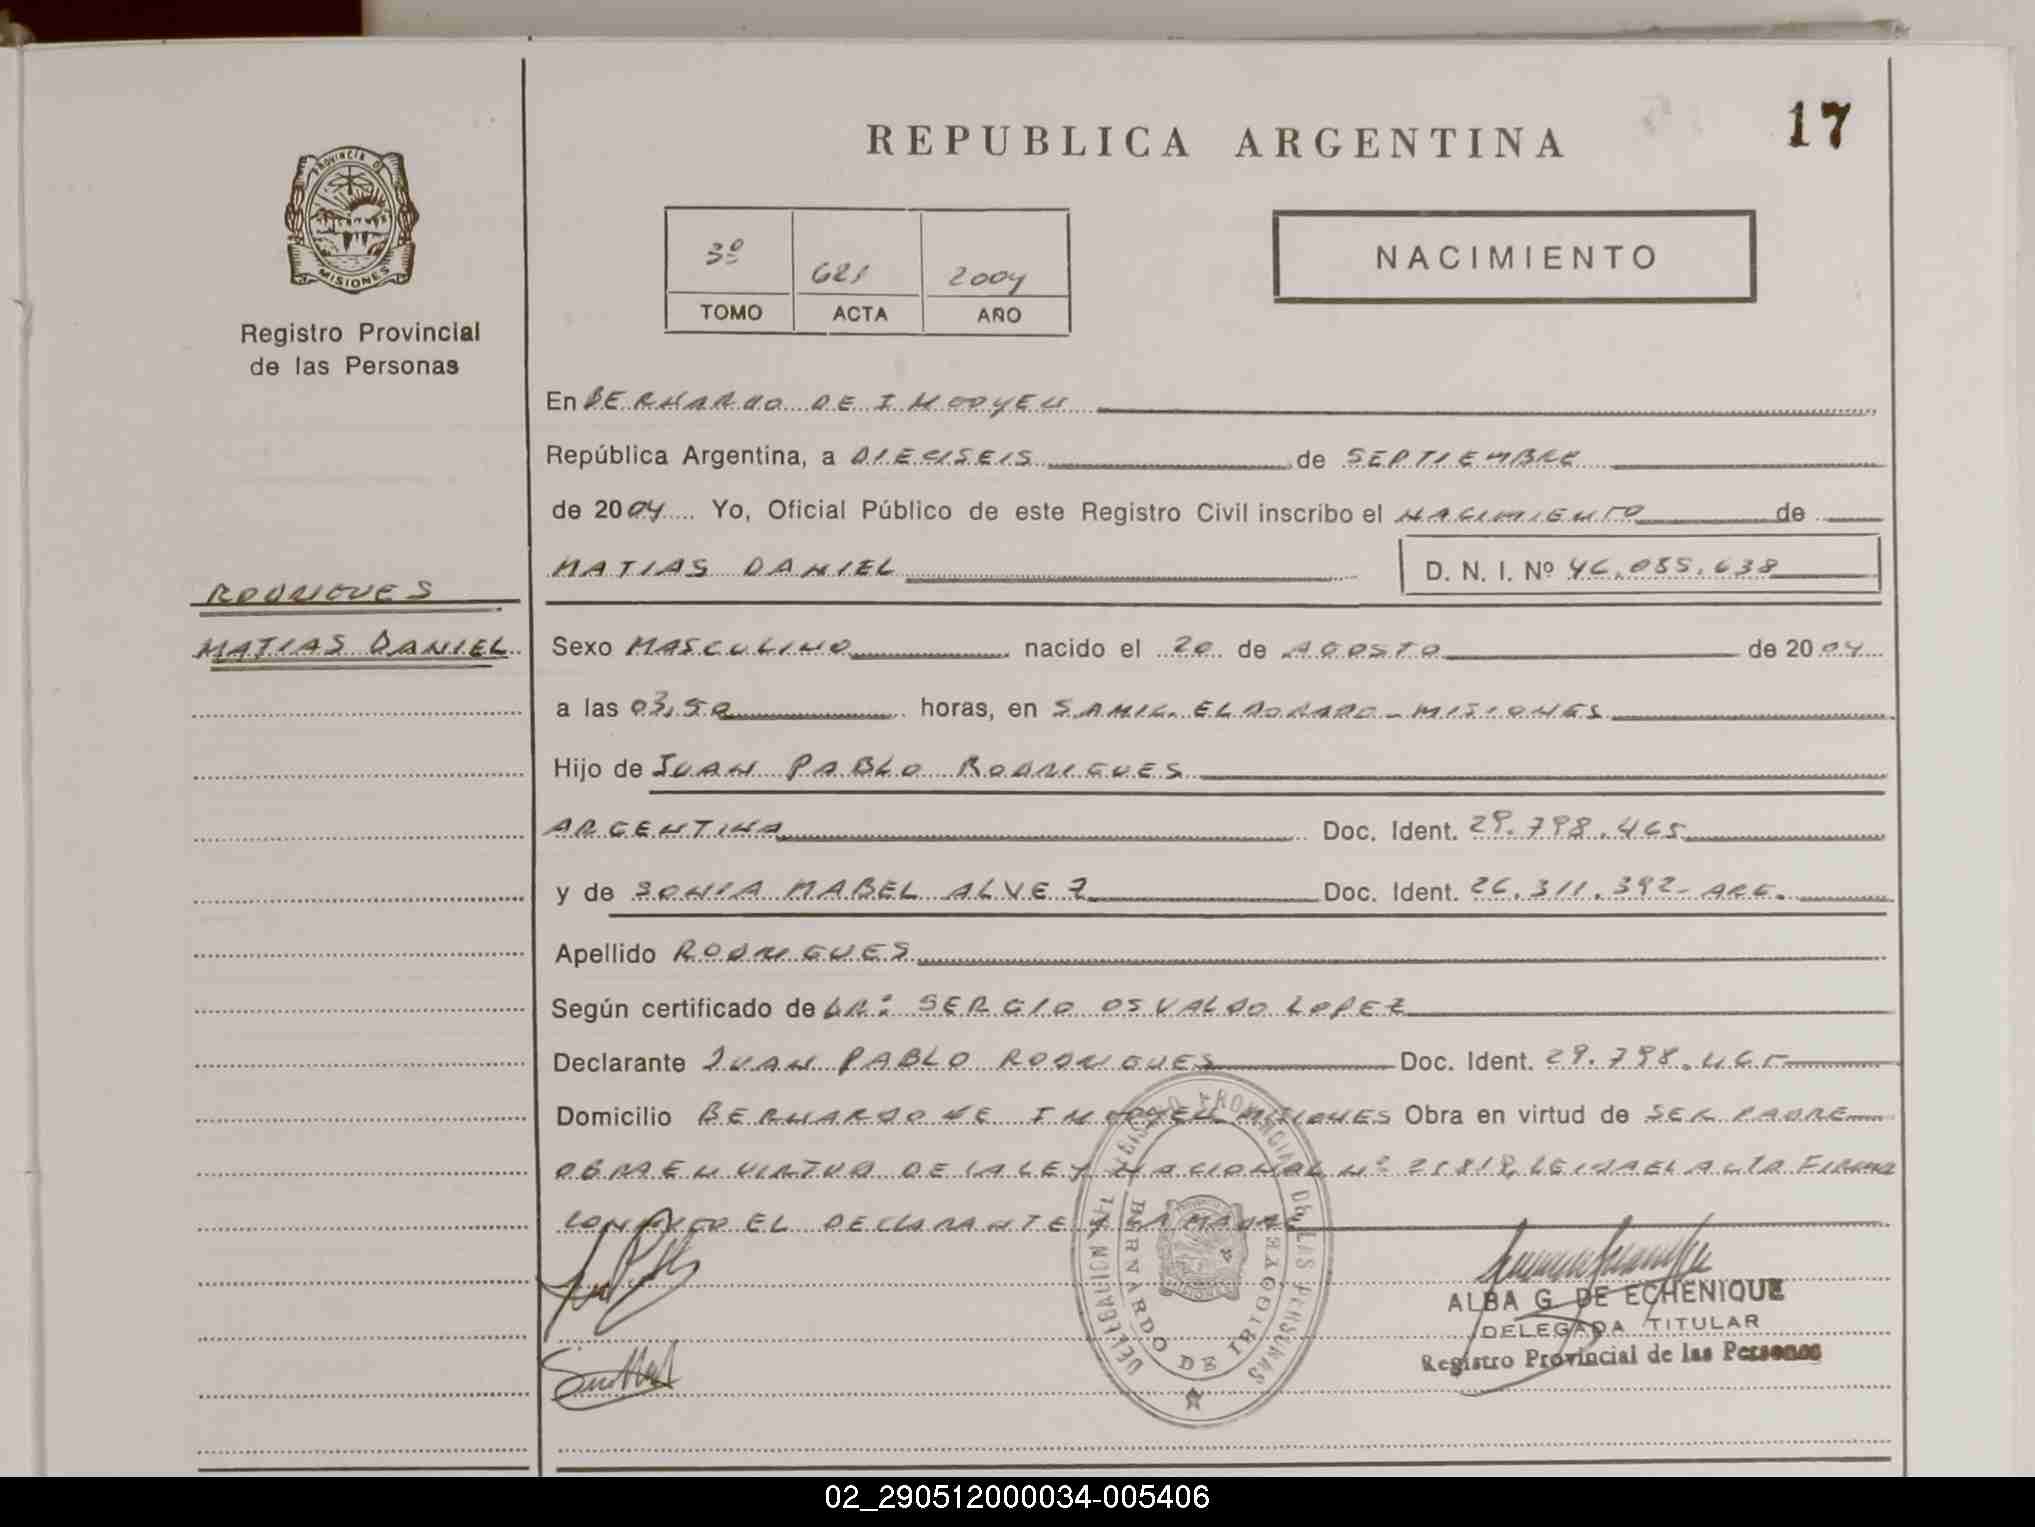 REPUBLICA ARGENTINA
17
PROVINCIA DE
MISIONES
Registro Provincial
de las Personas
3º 621 2004
TOMO ACTA AÑO
NACIMIENTO
En BERNARDO DE IRIGOYEN
República Argentina, a DIECISEIS de SEPTIEMBRE
de 2004 Yo, Oficial Público de este Registro Civil inscribo el NACIMIENTO de
MATIAS DANIEL D. N. I. Nº 46.085.638
RODRIGUES
MATIAS DANIEL
Sexo MASCULINO nacido el 20 de AGOSTO de 2004
a las 03,50 horas, en SAMIC. ELDORADO - MISIONES
Hijo de JUAN PABLO RODRIGUES
ARGENTINA Doc. Ident. 29.798.465
y de SONIA MABEL ALVEZ Doc. Ident. 26.311.392- ARG.
Apellido RODRIGUES
Según certificado de DR: SERGIO OSVALDO LOPEZ
Declarante JUAN PABLO RODRIGUES Doc. Ident. 29.798.465
Domicilio BERNARDO DE IRIGOYEN MISIONES Obra en virtud de SER PADRE
OBRA EN VIRTUD DE LA LEY NACIONAL Nº 25818, LEIDA EL ACTA FIRMA
CONMIGO EL DECLARANTE Y LA MADRE
DELEGACION DEL REGISTRO PROVINCIAL DE LAS PERSONAS
BERNARDO DE IRIGOYEN
ALBA G. DE ECHENIQUE
DELEGADA TITULAR
Registro Provincial de las Personas
02_290512000034-005406